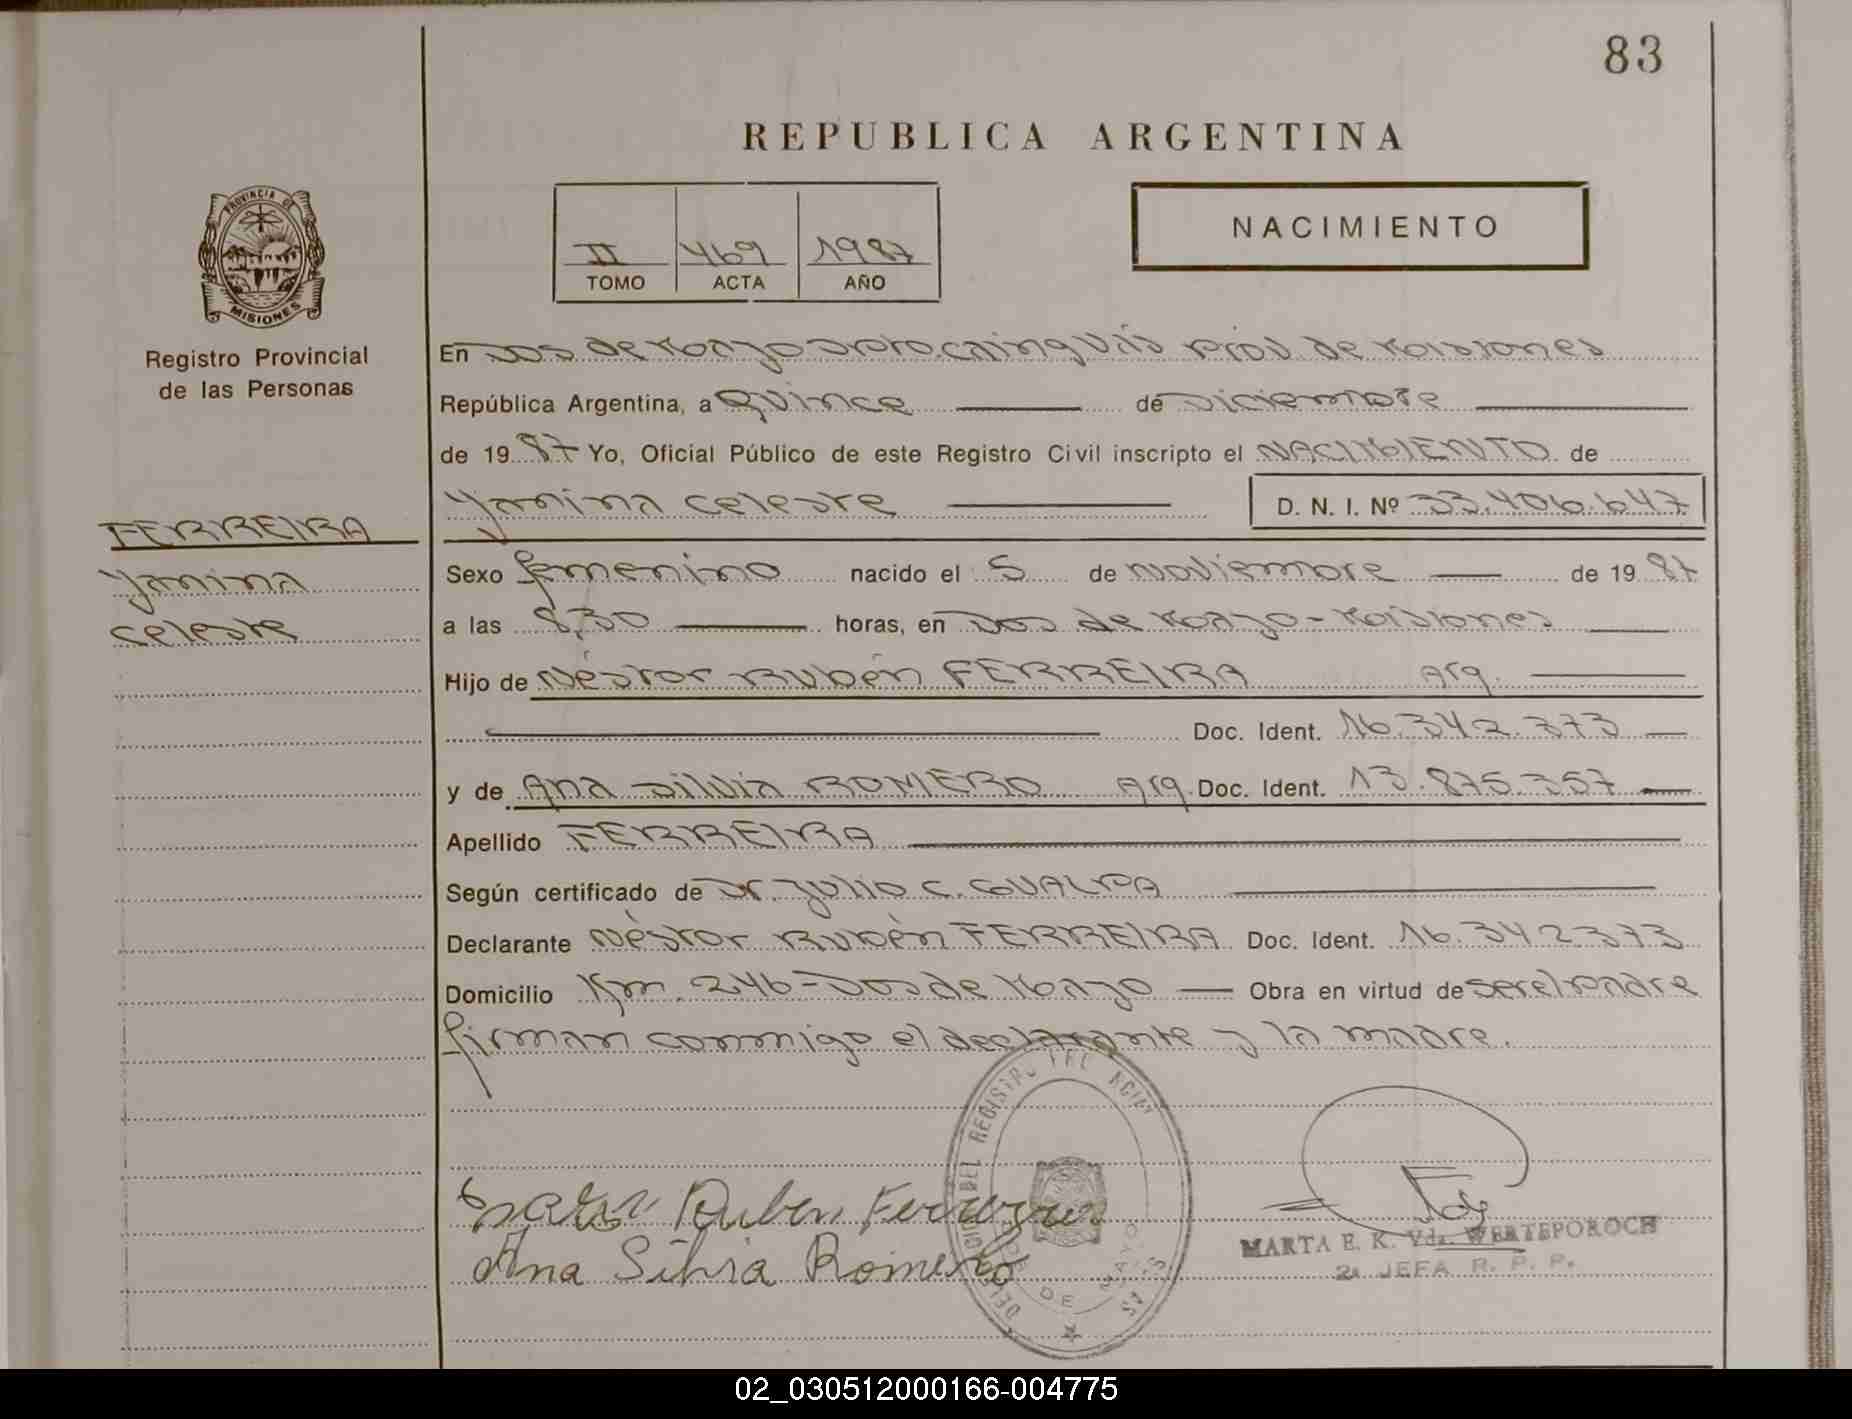 83
REPUBLICA ARGENTINA
PROVINCIA DE
MISIONES
Registro Provincial
de las Personas
II 469 1987
TOMO ACTA AÑO
NACIMIENTO
En Dos de Mayo Dpto. Cainguás Prov. de Misiones
República Argentina, a Quince de Diciembre
de 1987 Yo, Oficial Público de este Registro Civil inscripto el NACIMIENTO de
Yanina Celeste D. N. I. Nº 33.406.647
FERREIRA
Yanina
Celeste
Sexo femenino nacido el 5 de Noviembre de 1987
a las 8,30 horas, en Dos de Mayo - Misiones
Hijo de Néstor Rubén FERREIRA Arg.
Doc. Ident. 16.342.373
y de Ana Silvia ROMERO Arg. Doc. Ident. 13.875.357
Apellido FERREIRA
Según certificado de Dr. Julio C. GUALPA
Declarante Néstor Rubén FERREIRA Doc. Ident. 16.342373
Domicilio Km. 246 - Dos de Mayo Obra en virtud de ser el padre
firman conmigo el declarante y la madre.
DEL REGISTRO
DE MAYO
Ruben Ferreira
Ana Silvia Romero
MARTA E. K. Vda. WERTEPOROCH
2a JEFA R. P. P.
02_030512000166-004775